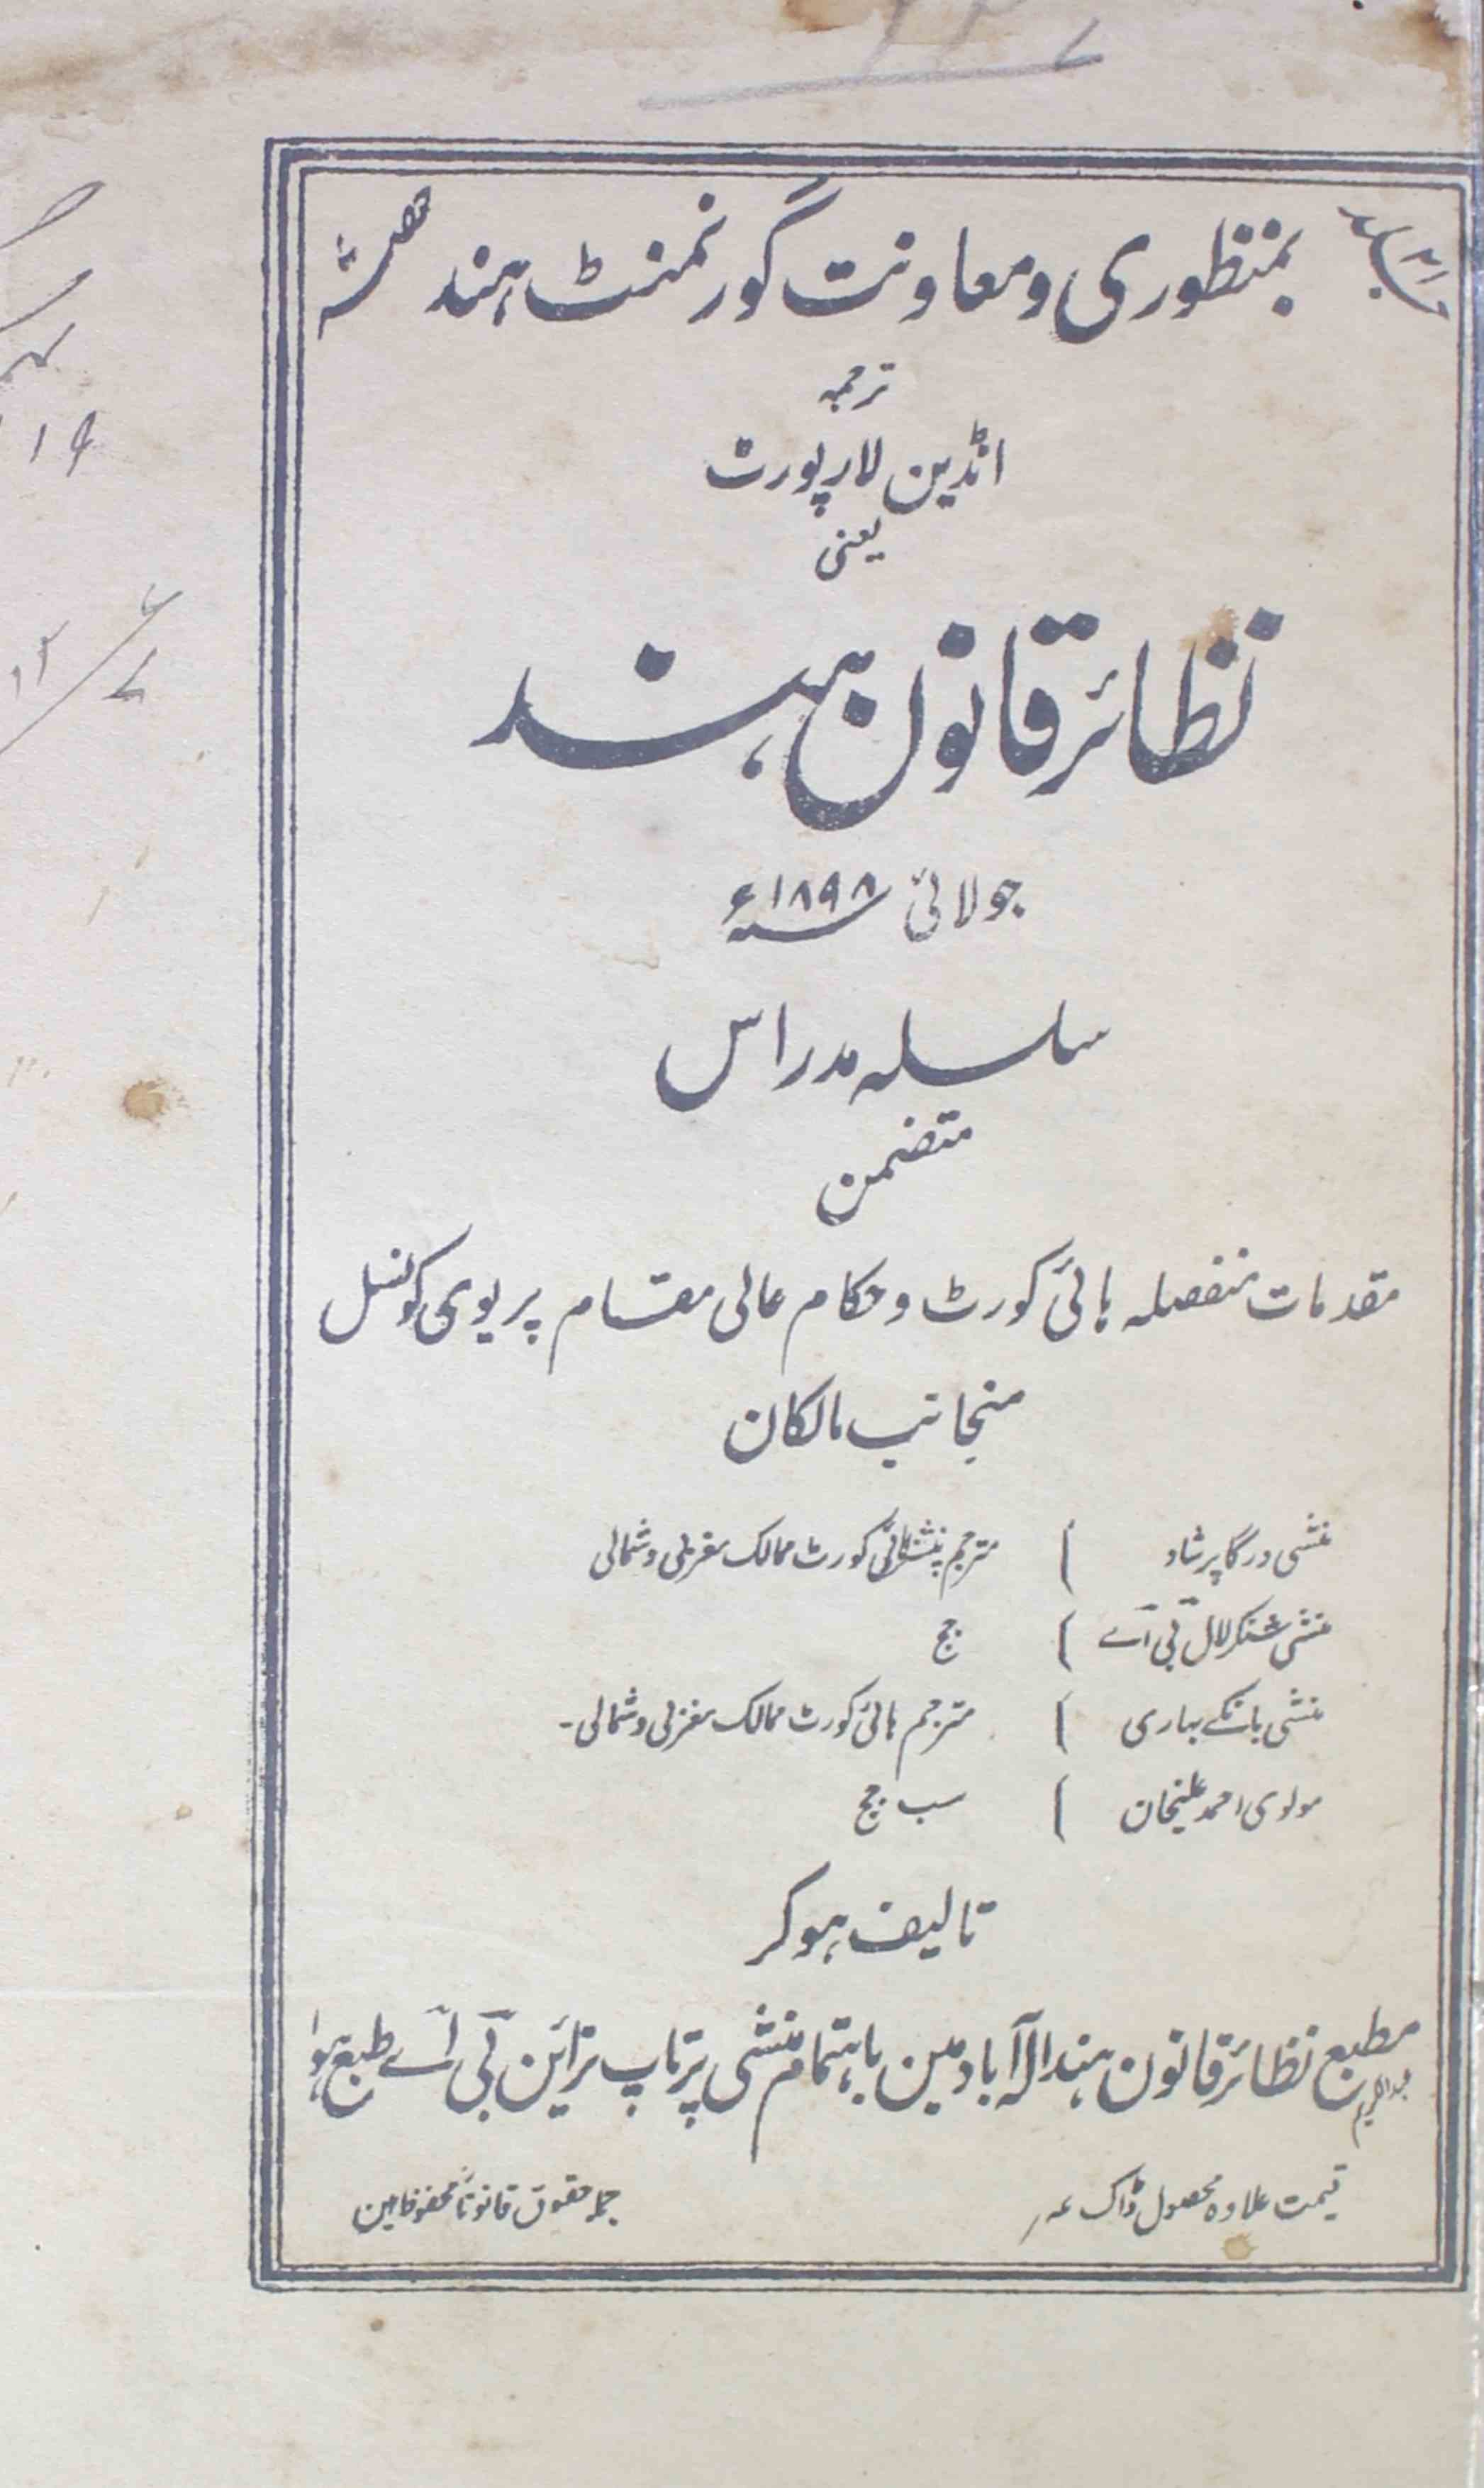 بمنظوری و معاونت گورنمنٹ ہند
ترجمہ
انڈین لا رپورٹ
یعنی
نظائر قانون ہند
جولائی ۱۸۹۸ء
سلسلہ مدراس
متضمن
مقدمات منفصلہ ہائی کورٹ و حکام عالی مقام پریوی کونسل
منجانب مالکان
منشی درگا پرشاد ) مترجم پنشنر ہائی کورٹ ممالک مغربی و شمالی
منشی شنکر لال بی اے ) جج
منشی بانکے بہاری ) مترجم ہائی کورٹ ممالک مغربی و شمالی -
مولوی احمد علیخان ) سب جج
تالیف ہو کر
مطبع نظائر قانون ہند الہ آباد مین باہتمام منشی پرتاپ نراین بی اے طبع ہوا
عبدالکریم
قیمت علاوہ محصول ڈاک
جملہ حقوق قانوناً محفوظ ہین